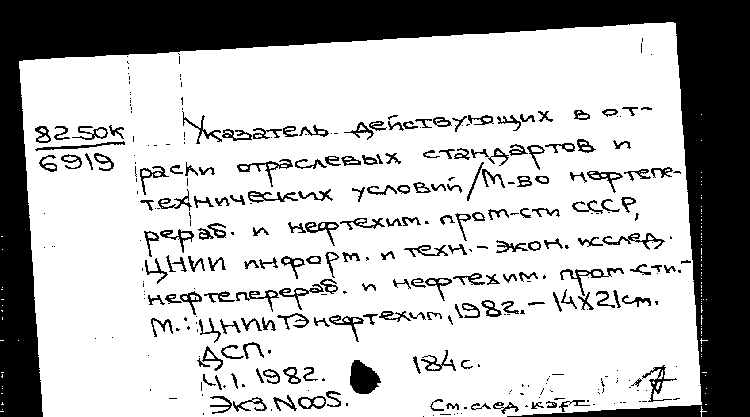 82-50к
6919
Указатель действующих в от-
расли отраслевых стандартов и
технических условий / М-во нефтепе-
рераб. и нефтехим. пром-сти СССР,
ЦНИИ информ. и техн.-экон. исслед.
нефтеперераб. и нефтехим. пром-сти.-
М.: ЦНИИТЭнефтехим, 1982.- 14х21см.
ДСП.
Ч.1. 1982. 184с.
Экз.N005.
См. след. карт.